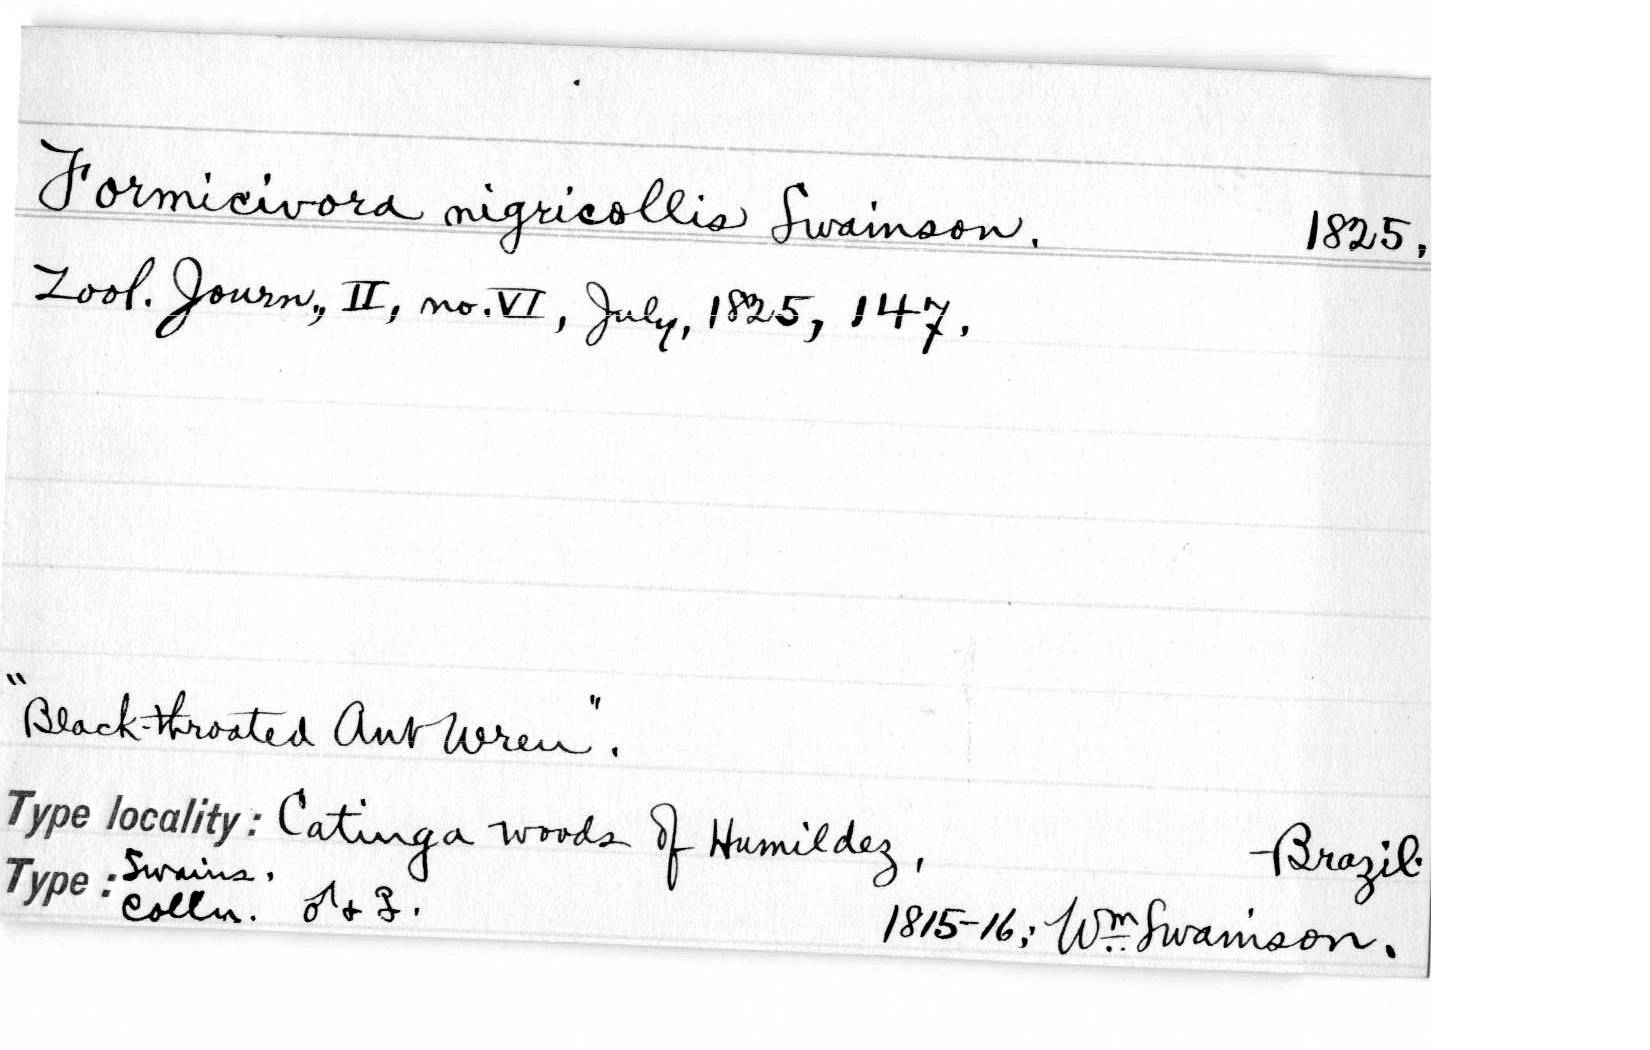 Formicivora nigricollis Swainson. 1825,
Zool. Journ., II, no. VI, July, 1825, 147.
"Black-throated Ant Wren".
Type locality: Catinga woods of Humildez, Brazil.
Type: Swains. Colln. ♂ & ♀. 1815-16; Wm. Swainson.